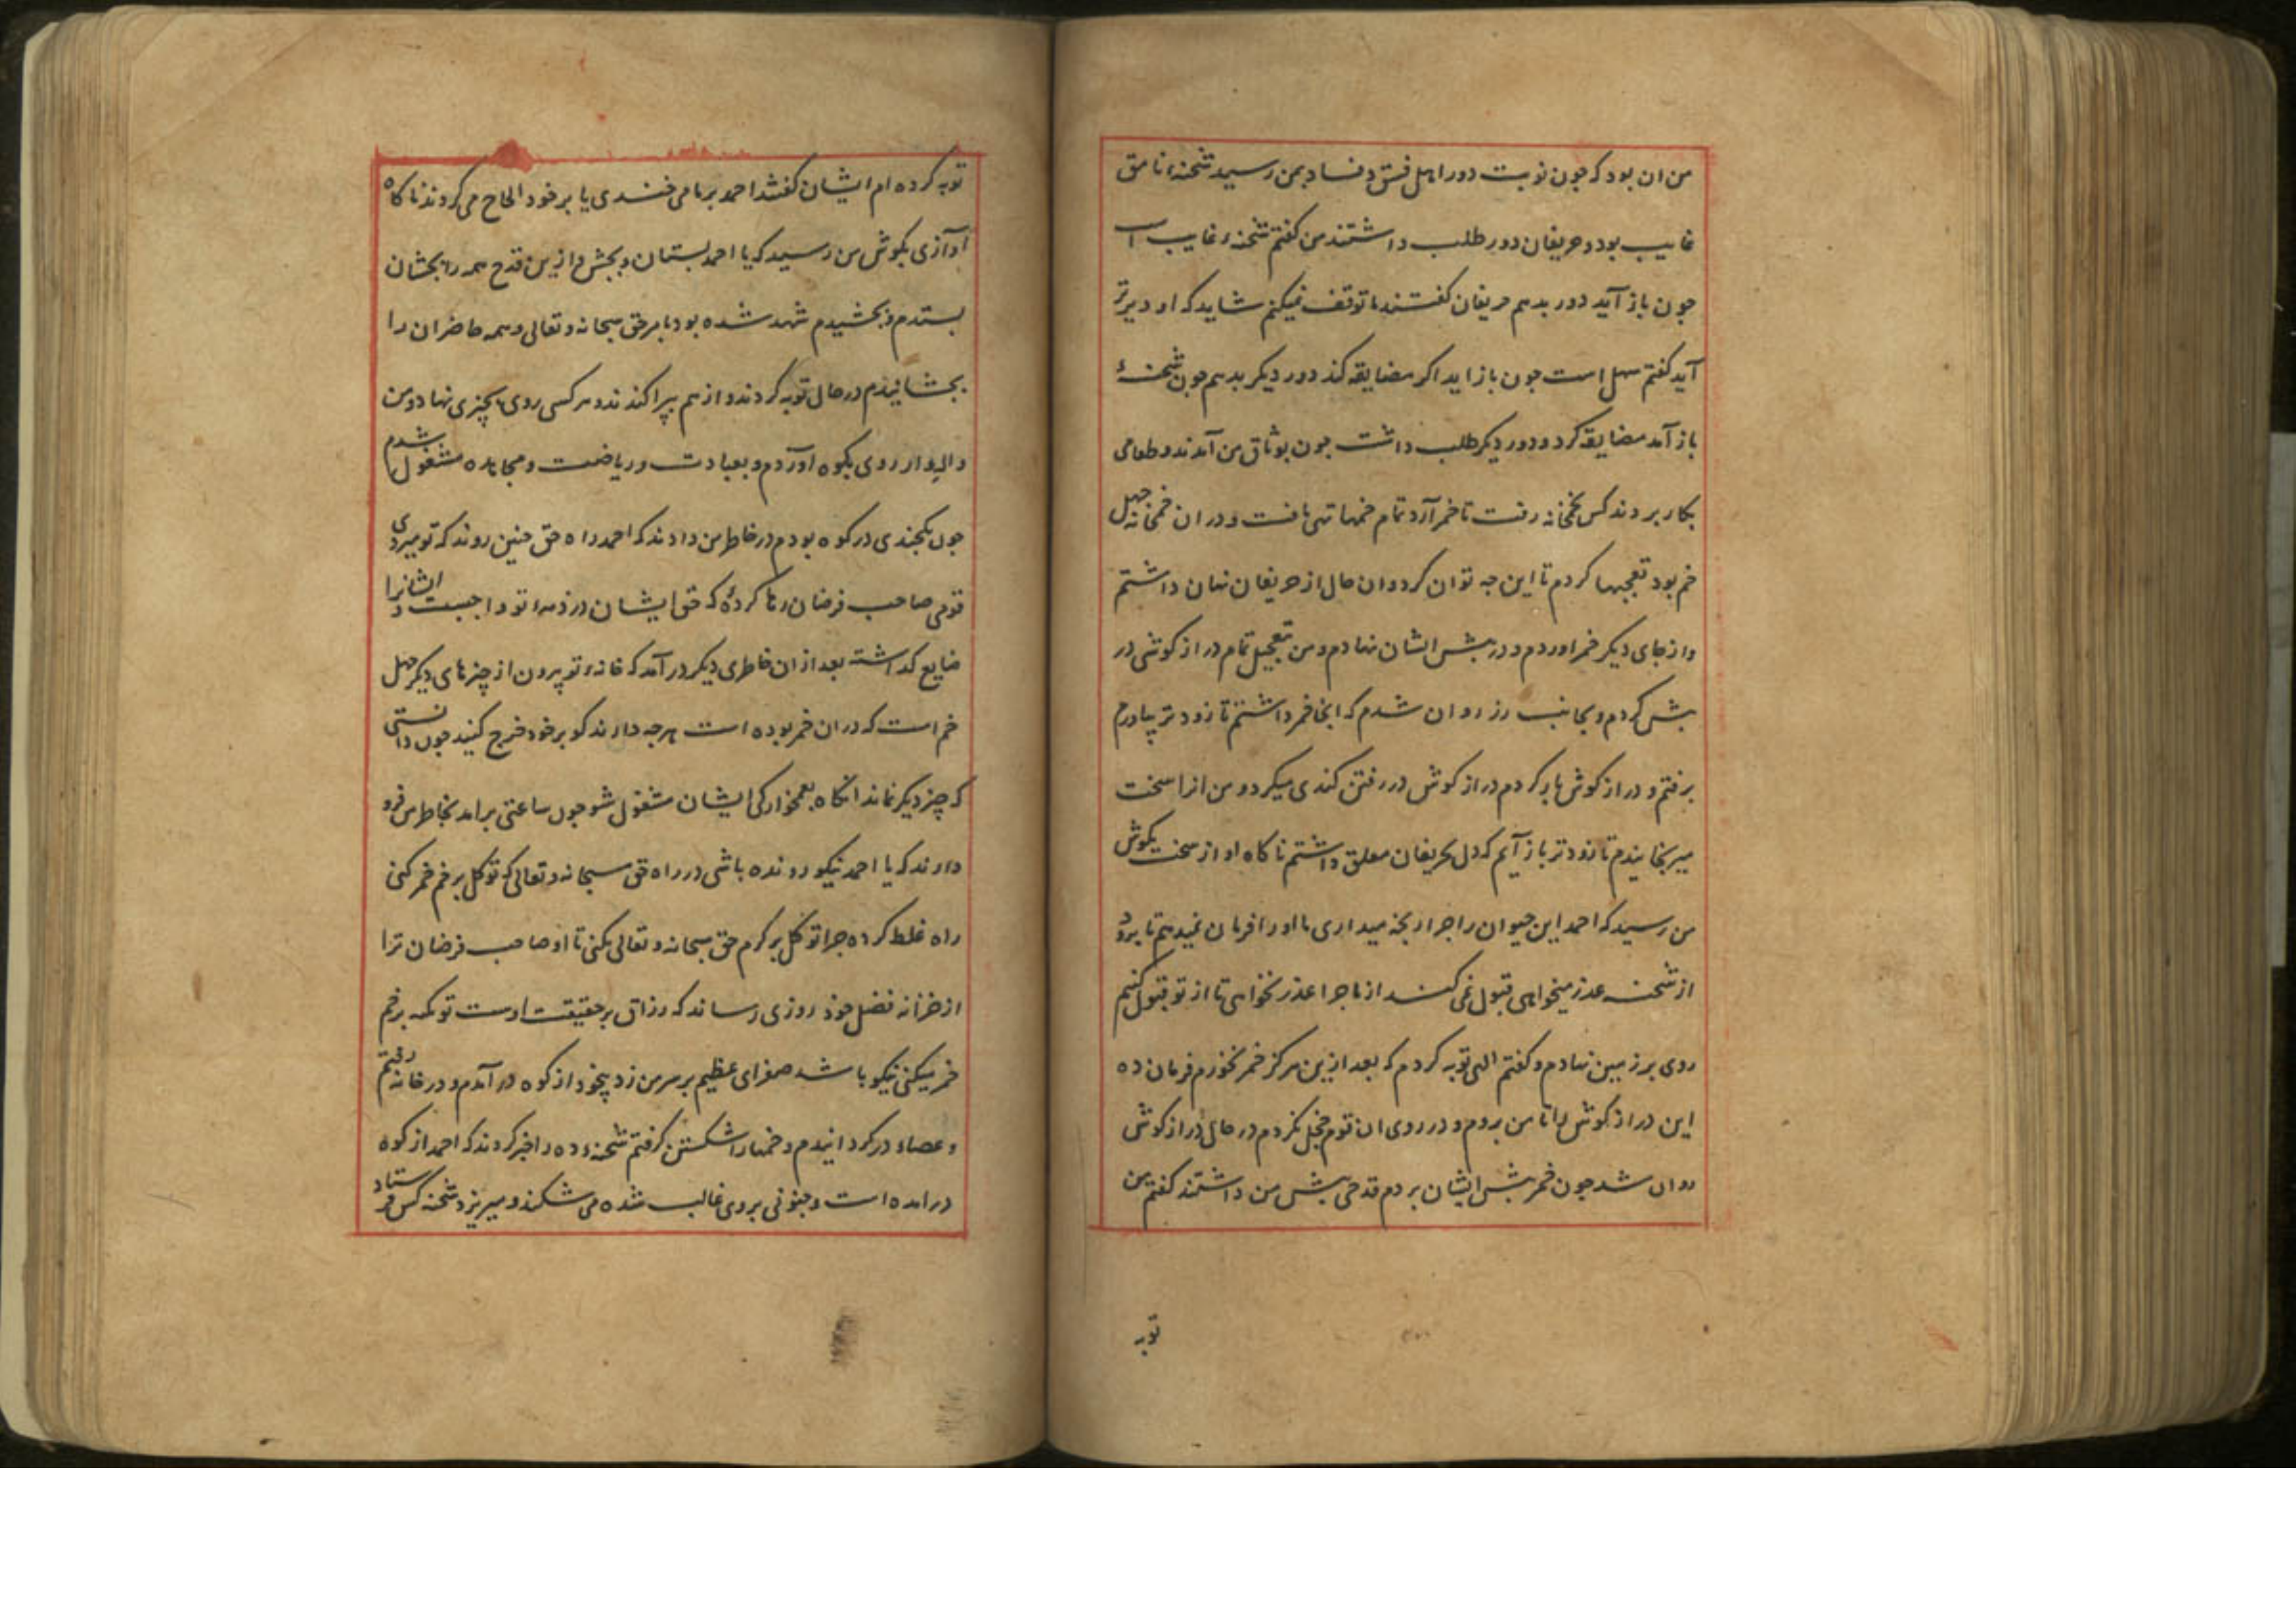 من ان بود که جون نوبت دور اهل فسق و فساد بمن رسید شحنهٔ نامق
غایب بود و حریفان دور طلب داشتند من کفتم شحنه غایب است
جون باز آید دور بدهم حریفان کفتند ما توقف نمیکنم شاید که او دیرتر
آید کفتم سهل است جون باز اید اکر مضایقه کند دور دیکر بدهم جون شحنهٔ
باز آمد مضایقه کرد و دور دیکر طلب داشت جون بوثاق من آمدند و طعامی
بکار بردند کس بخمخانه رفت تا خمر آرد تمام خمها تهی یافت و در ان خمخانه جهل
خم بود تعجبها کردم تا این جه توان کرد و ان حال از حریفان نهان داشتم
و از جای دیکر خمر اوردم و در بیش ایشان نهادم و من بتعجیل تمام دراز کوشی در
بیش کردم و بجانب رز روان شدم که انجا خمر داشتم تا زودتر بیاورم
برفتم و دراز کوش بار کردم دراز کوش در رفتن کندی میکرد و من انرا سخت
میرنجانیدم تا زودتر باز آیم که دل بحریفان معلق داشتم ناکاه اواز سخت بکوش
من رسید که احمد این حیوان را جرا رنجه میداری ما او را فرمان نمیدهیم تا برود
از شحنه عذر میخواهی قبول نمی کند از ما جرا عذر نخواهی تا از تو قبول کنیم
روی بر زمین نهادم و کفتم الهی توبه کردم که بعد ازین هرکز خمر نخورم فرمان ده
این دراز کوش را تا من بروم و در روی ان قوم خجل نکردم در حال دراز کوش
روان شد جون خمر بیش ایشان بردم قدحی بیش من داشتند کفتم من
توبه
توبه کرده ام ایشان کفتند احمد بر ما می خندی یا بر خود الحاح می کردند ناکاه
آوازی بکوش من رسید که یا احمد بستان و بچش و ازین قدح همه را بچشان
بستدم و بچشیدم شهد شده بود بامر حق سبحانه و تعالی و همه حاضران را
بچشانیدم در حال توبه کردند و از هم بپراکندند و هر کسی روی بچیزی نهاد و من
واله وار روی بکوه اوردم و بعبادت و ریاضت و مجاهده مشغول شدم
جون یکجندی در کوه بودم در خاطر من دادند که احمد راه حق جنین روند که تو میروی
قومی صاحب فرضان رها کردهٔ که حق ایشان در ذمهٔ تو واجبست و ایشانرا
ضایع کداشته بعد از ان خاطری دیکر در آمد که خانهٔ تو بیرون از چیزهای دیکر جهل
خم است که در ان خمر بوده است هرجه دارند کو بر خود خرج کنید جون دانستی
که چیز دیکر نماند انکاه بغمخوارکی ایشان مشغول شو جون ساعتی برامد بخاطر من فرو
دارند که یا احمد نیکو رونده باشی در راه حق سبحانه و تعالی که توکل بر خم خمر کنی
راه غلط کرده جرا توکل بر کرم حق سبحانه و تعالی نکنی تا او صاحب فرضان ترا
از خزانه فضل خود روزی رساند که رزاق بر حقیقت اوست تو تکیه بر خم
خمر میکنی نیکو باشد صفرای عظیم بر سر من زد بیخود از کوه در آمدم و در خانه رفتم
و عصا در کردانیدم و خمها را شکستن کرفتم شحنهٔ ده را خبر کردند که احمد از کوه
در امده است و جنونی بر وی غالب شده می شکند و میریزد شحنه کس فرستاد